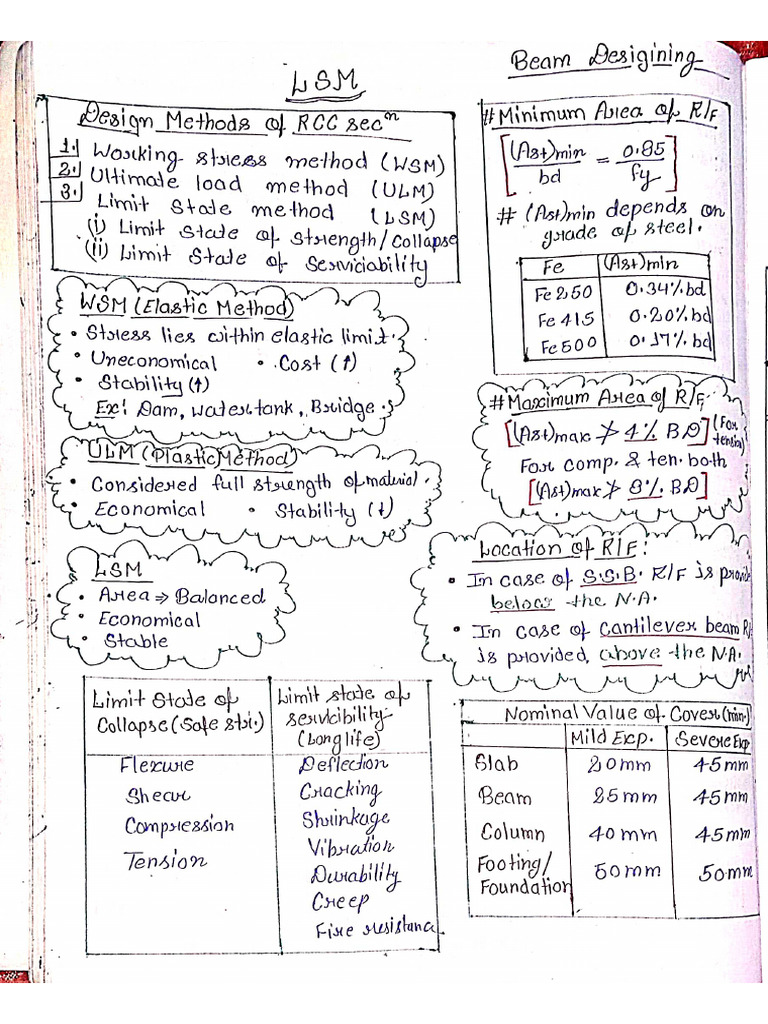 LSM
Design Methods of RCC secⁿ
1. Working stress method (WSM)
2. Ultimate load method (ULM)
3. Limit State method (LSM)
(i) Limit State of Strength/Collapse
(ii) Limit State of Serviciability
WSM (Elastic Method)
• Stress lies within elastic limit.
• Uneconomical • Cost (↑)
• Stability (↑)
Ex: Dam, water tank, Bridge.
ULM (Plastic Method)
• Considered full strength of material.
• Economical • Stability (↓)
LSM
• Area ⇒ Balanced
• Economical
• Stable
Limit State of Collapse (Safe str.) | Limit state of servicibility (Long life)
Flexure | Deflection
Shear | Cracking
Compression | Shrinkage
Tension | Vibration
Durability
Creep
Fire resistance
Beam Desigining
# Minimum Area of R/F
[(Ast)min / bd = 0.85 / fy]
# (Ast)min depends on
grade of steel.
Fe | (Ast)min
Fe 250 | 0.34% bd
Fe 415 | 0.20% bd
Fe 500 | 0.17% bd
# Maximum Area of R/F
[(Ast)max ≯ 4% BD] (For tension)
For comp. & ten. both
[(Ast)max ≯ 8% BD]
Location of R/F:
• In case of S.S.B. R/F is provide
below the N.A.
• In case of cantilever beam R/
is provided above the N.A.
Nominal Value of Cover (min.)
Mild Exp. | Severe Exp
Slab | 20mm | 45mm
Beam | 25mm | 45mm
Column | 40mm | 45mm
Footing/ Foundation | 50mm | 50mm